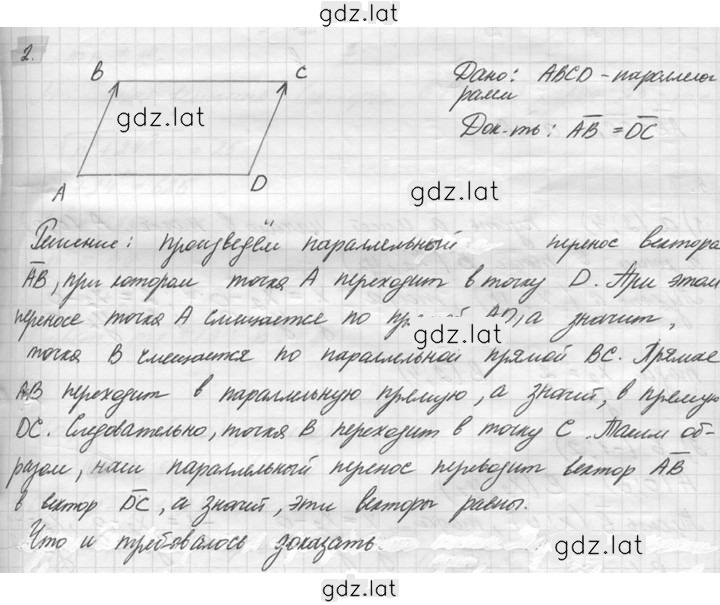 gdz.lat
2.
B C
Дано: ABCD - параллелог
рамм
gdz.lat
Док-ть: AB = DC
A D
gdz.lat
Решение: произведём параллельный перенос вектора
AB, при котором точка A переходит в точку D. При этом
переносе точка A смещается по AD, а значит,
gdz.lat
точка B смещается по параллельной прямой BC. Прямая
AB переходит в параллельную прямую, а значит, в прямую
DC. Следовательно, точка B переходит в точку C. Таким об-
разом, наш параллельный перенос переводит вектор AB
в вектор DC, а значит, эти векторы равны.
Что и требовалось доказать.
gdz.lat
gdz.lat